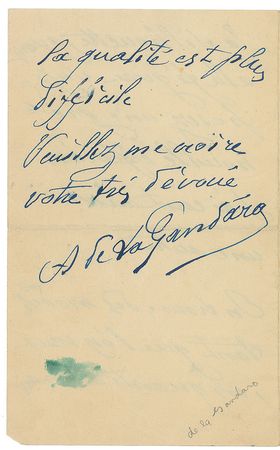 la qualité est plus
difficile
Veuillez me croire
votre très dévoué
A de La Gandara
de la Gandara